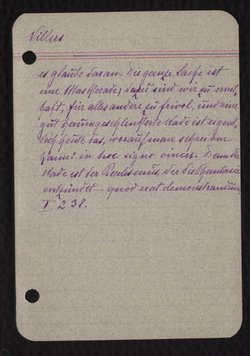 Villers
es glaube daran. Die ganze Sache ist
eine Maskerade; dazu sind wir zu ernst-
haft, für alles andere zu frivol, und eine
gut herumgeschlenkerte Mode ist eigent-
lich heute das, worauf man schwören
kann: in hoc signo vinces. Denn die
Mode ist der Rhythmus, der die
entzündet – quod erat demonstrandum
I 238.